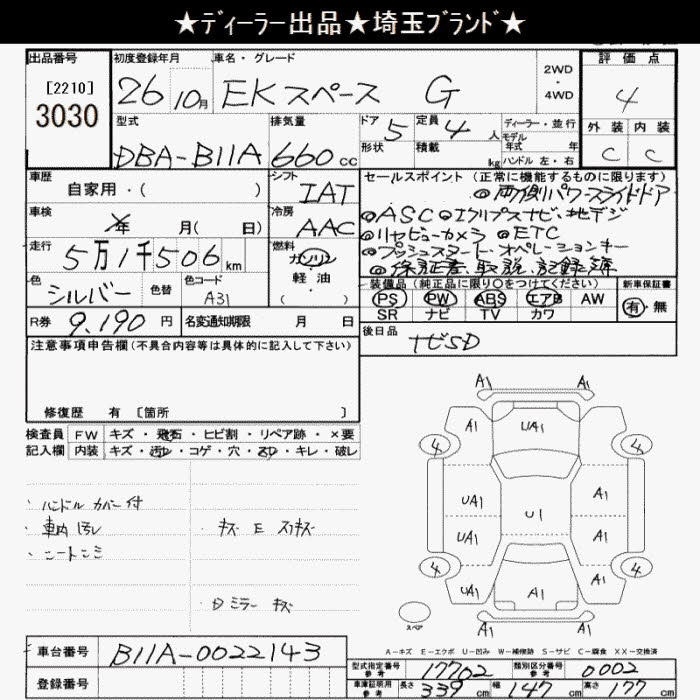 ★ディーラー出品★埼玉ブランド★
出品番号
[2210]
3030
初度登録年月
26 10月
車名・グレード
EKスペース G
2WD
・
4WD
評価点
4
外装 内装
C C
型式
DBA-B11A
排気量
660 cc
ドア
5
定員
4 人
形状
積載
kg
ディーラー・並行
モデル
年式 年
ハンドル 左・右
車歴
自家用・( )
シフト
IAT
車検
年 月( 日)
冷房
AAC
走行
5万1千506km
燃料
ガソリン
軽油
・( )
色
シルバー
色替
色コード
A31
R券 9,190 円
名変通知期限 月 日
セールスポイント (正常に機能するものに限ります)
◎両側パワースライドドア
◎ASC◎エクリプスナビ・地デジ
◎リヤビューカメラ ◎ETC
◎プッシュスタート・オペレーションキー
◎保証書、取説、記録簿
装備品(純正品に限り○をつけてください)
PS PW ABS エアB AW
SR ナビ TV カワ
新車保証書
有・無
後日品
ナビSD
注意事項申告欄(不具合内容等は具体的に記入して下さい)
修復歴 有 [箇所 ]
検査員 FW キズ・飛石・ヒビ割・リペア跡・×要
記入欄 内装 キズ・汚レ・コゲ・穴・スレ・キレ・破レ
・ハンドルカバー付
・車内汚レ
・シートシミ
キズ E スリキズ
ミラー キズ
A1 A1
A1 UA1 A1
4 4
UA1 A1
U1
UA1 A1
4 4
UA1 A1 A1
スペア
A1 A1
A-キズ E-エクボ U-凹み W-補修跡 S-サビ C-腐食 XX-交換済
車台番号 B11A-0022143
登録番号
型式指定番号
参考
17702
類別区分番号
参考
0002
車庫証明用
参考
長さ 339cm 幅 147cm 高さ 177cm